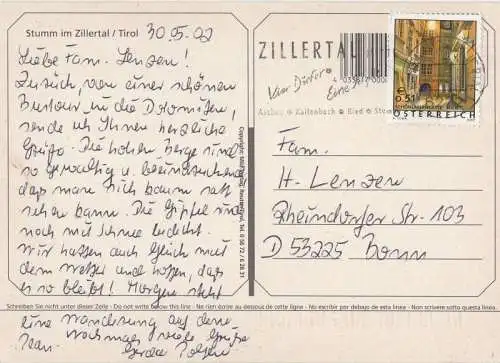 Stumm im Zillertal / Tirol 30.5.02
Liebe Fam. Lenzen!
Zurück von einer schönen
Bustour in die Dolomiten,
sende ich Ihnen herzliche
Grüße. Die hohen Berge sind
so gewaltig u. beeindruckend
daß man sich kaum satt
sehen kann. Die Gipfel sind
noch mit Schnee bedeckt.
Wir hatten auch Glück mit
dem Wetter und hoffen, daß
es so bleibt! Morgen steht
Schreiben Sie nicht unter dieser Zeile - Do not write below this line - Ne rien écrire au dessous de cette ligne - No escribir por debajo de esta linea - Non scrivere sotto questa linea
eine Wanderung auf dem
Plan. nochmals viele Grüße
Gerda
ZILLERTAL
Vier Dörfer
Eine
Aschau Kaltenbach Ried Stumm
0.51
ÖSTERREICH
Fam.
H. Lenzen
Rheindorfer Str. 103
D 53225 Bonn